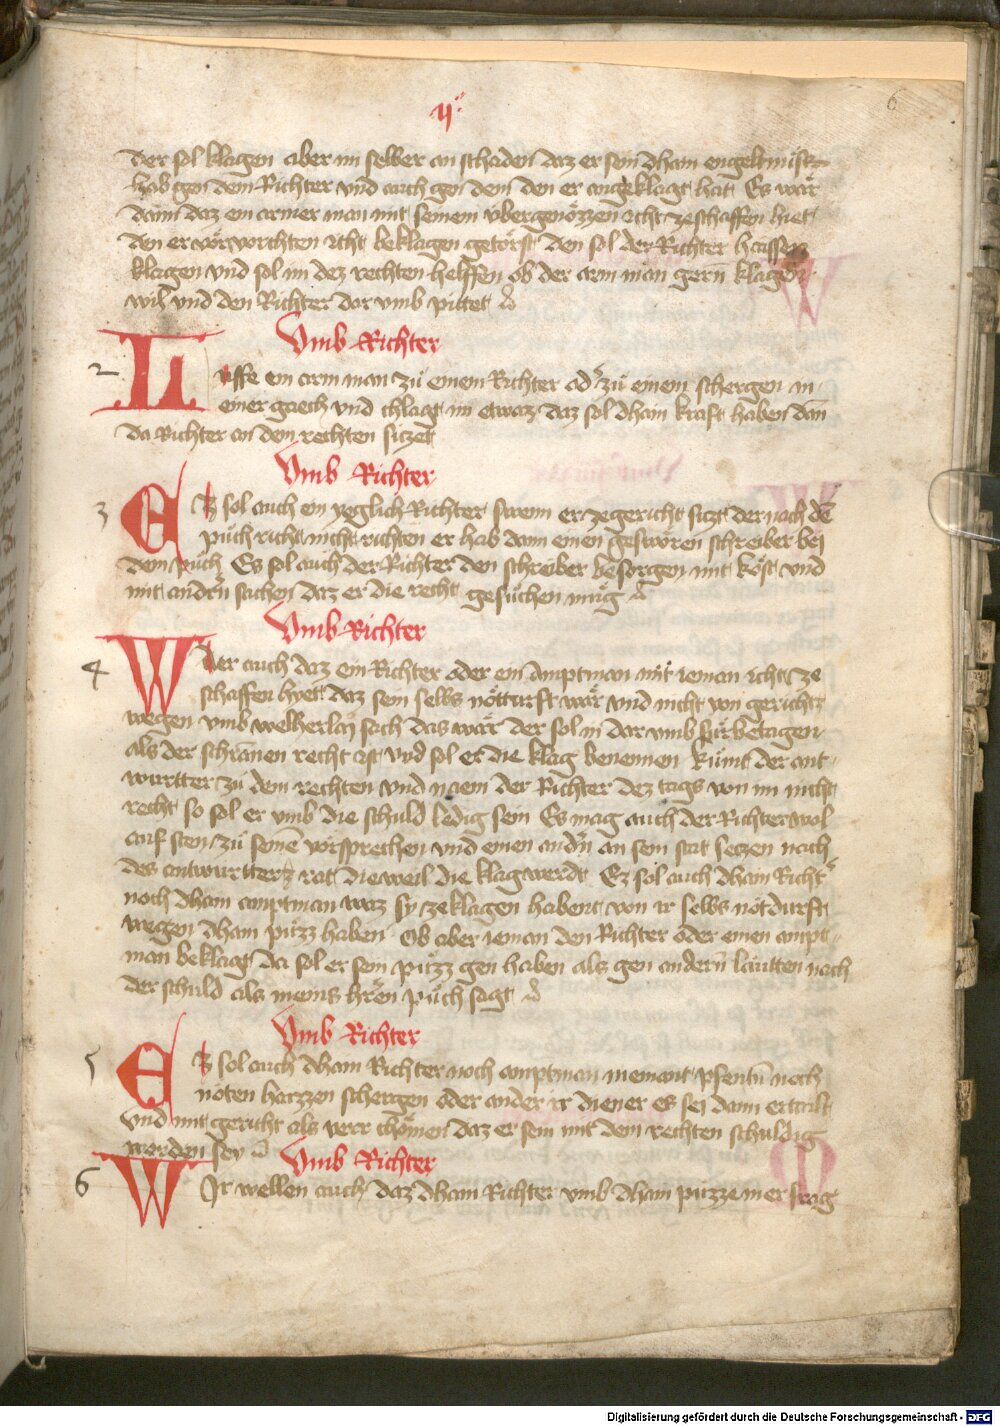 ij
6
der sol klagen aber im selber an schaden daz er sein dhain engeltnüsß
hab gen dem Richter vnd auch gen dem den er angeklagt hat Es wär
dann daz ein armer man mit seinem v̈bergenözzen icht zeschaffen hiet
den er vor vorchten icht beklagen getörst den sol der Richter haissen
klagen vnd sol im dez rechten helffen ob der arm man gern klagen
wil vnd den Richter dar vmb pittet
Vmb Richter
2 L uffe ein arm man zü einem Richter od' zü einem schergen in
einer gaech vnd chlagt im etwaz daz sol dhain kraft haben dan̄
da Richter an dem rechten siczet
Vmb Richter
3 E z sol auch ein yeglich Richter swenn er ze gericht siczt der nach dē
püch richt nicht richten er hab dann einen gesworen schreiber bei
dem püch Es sol auch der Richter den schreiber besorgen mit köst vnd
mit andern sachen daz er die recht gesüchen mug
Vmb Richter
4 W Wer auch daz ein Richter oder ein amptman mit ieman icht ze
schaffen hyett daz sein selbs nötturft wär vnd nicht von gerichtz
wegen vmb welherlaÿ sach das wär der sol in dar vmb fürbetagen
als der schrannen recht ist vnd sol er die klag benennen kümt der ant
wurtter zü dem rechten vnd naem der Richter dez tags von im nicht
recht so sol er vmb die schuld ledig sein Es mag auch der Richter wol
auf sten zü seinē vörsprechen vnd einen andn̄ an sein stat seczen nach
des antwurtterz rat die weil die klag werdt Ez sol auch dhain Richt'
noch dham amptman waz sy ze klagen habent von ir selbs nötdurft
wegen dham püzz haben Ob aber ieman den Richter oder einen ampt
man beklagt da sol er sein püzz gen haben als gen andern läutten nach
der schuld als meins hr̄en püch sagt
Vmb Richter
5 E z sol auch dhain Richter noch amptman niemant pfentn̄ noch
nöten haizzen schergen oder ander ir diener es sei dann ertailt
vnd mit gericht als verr chömen daz er sein mit dem rechten schuldig
worden sey
Vmb Richter
6 W Ir wellen auch daz dhain Richter vmb dhain püzze nimer frag
Digitalisierung gefördert durch die Deutsche Forschungsgemeinschaft - DFG